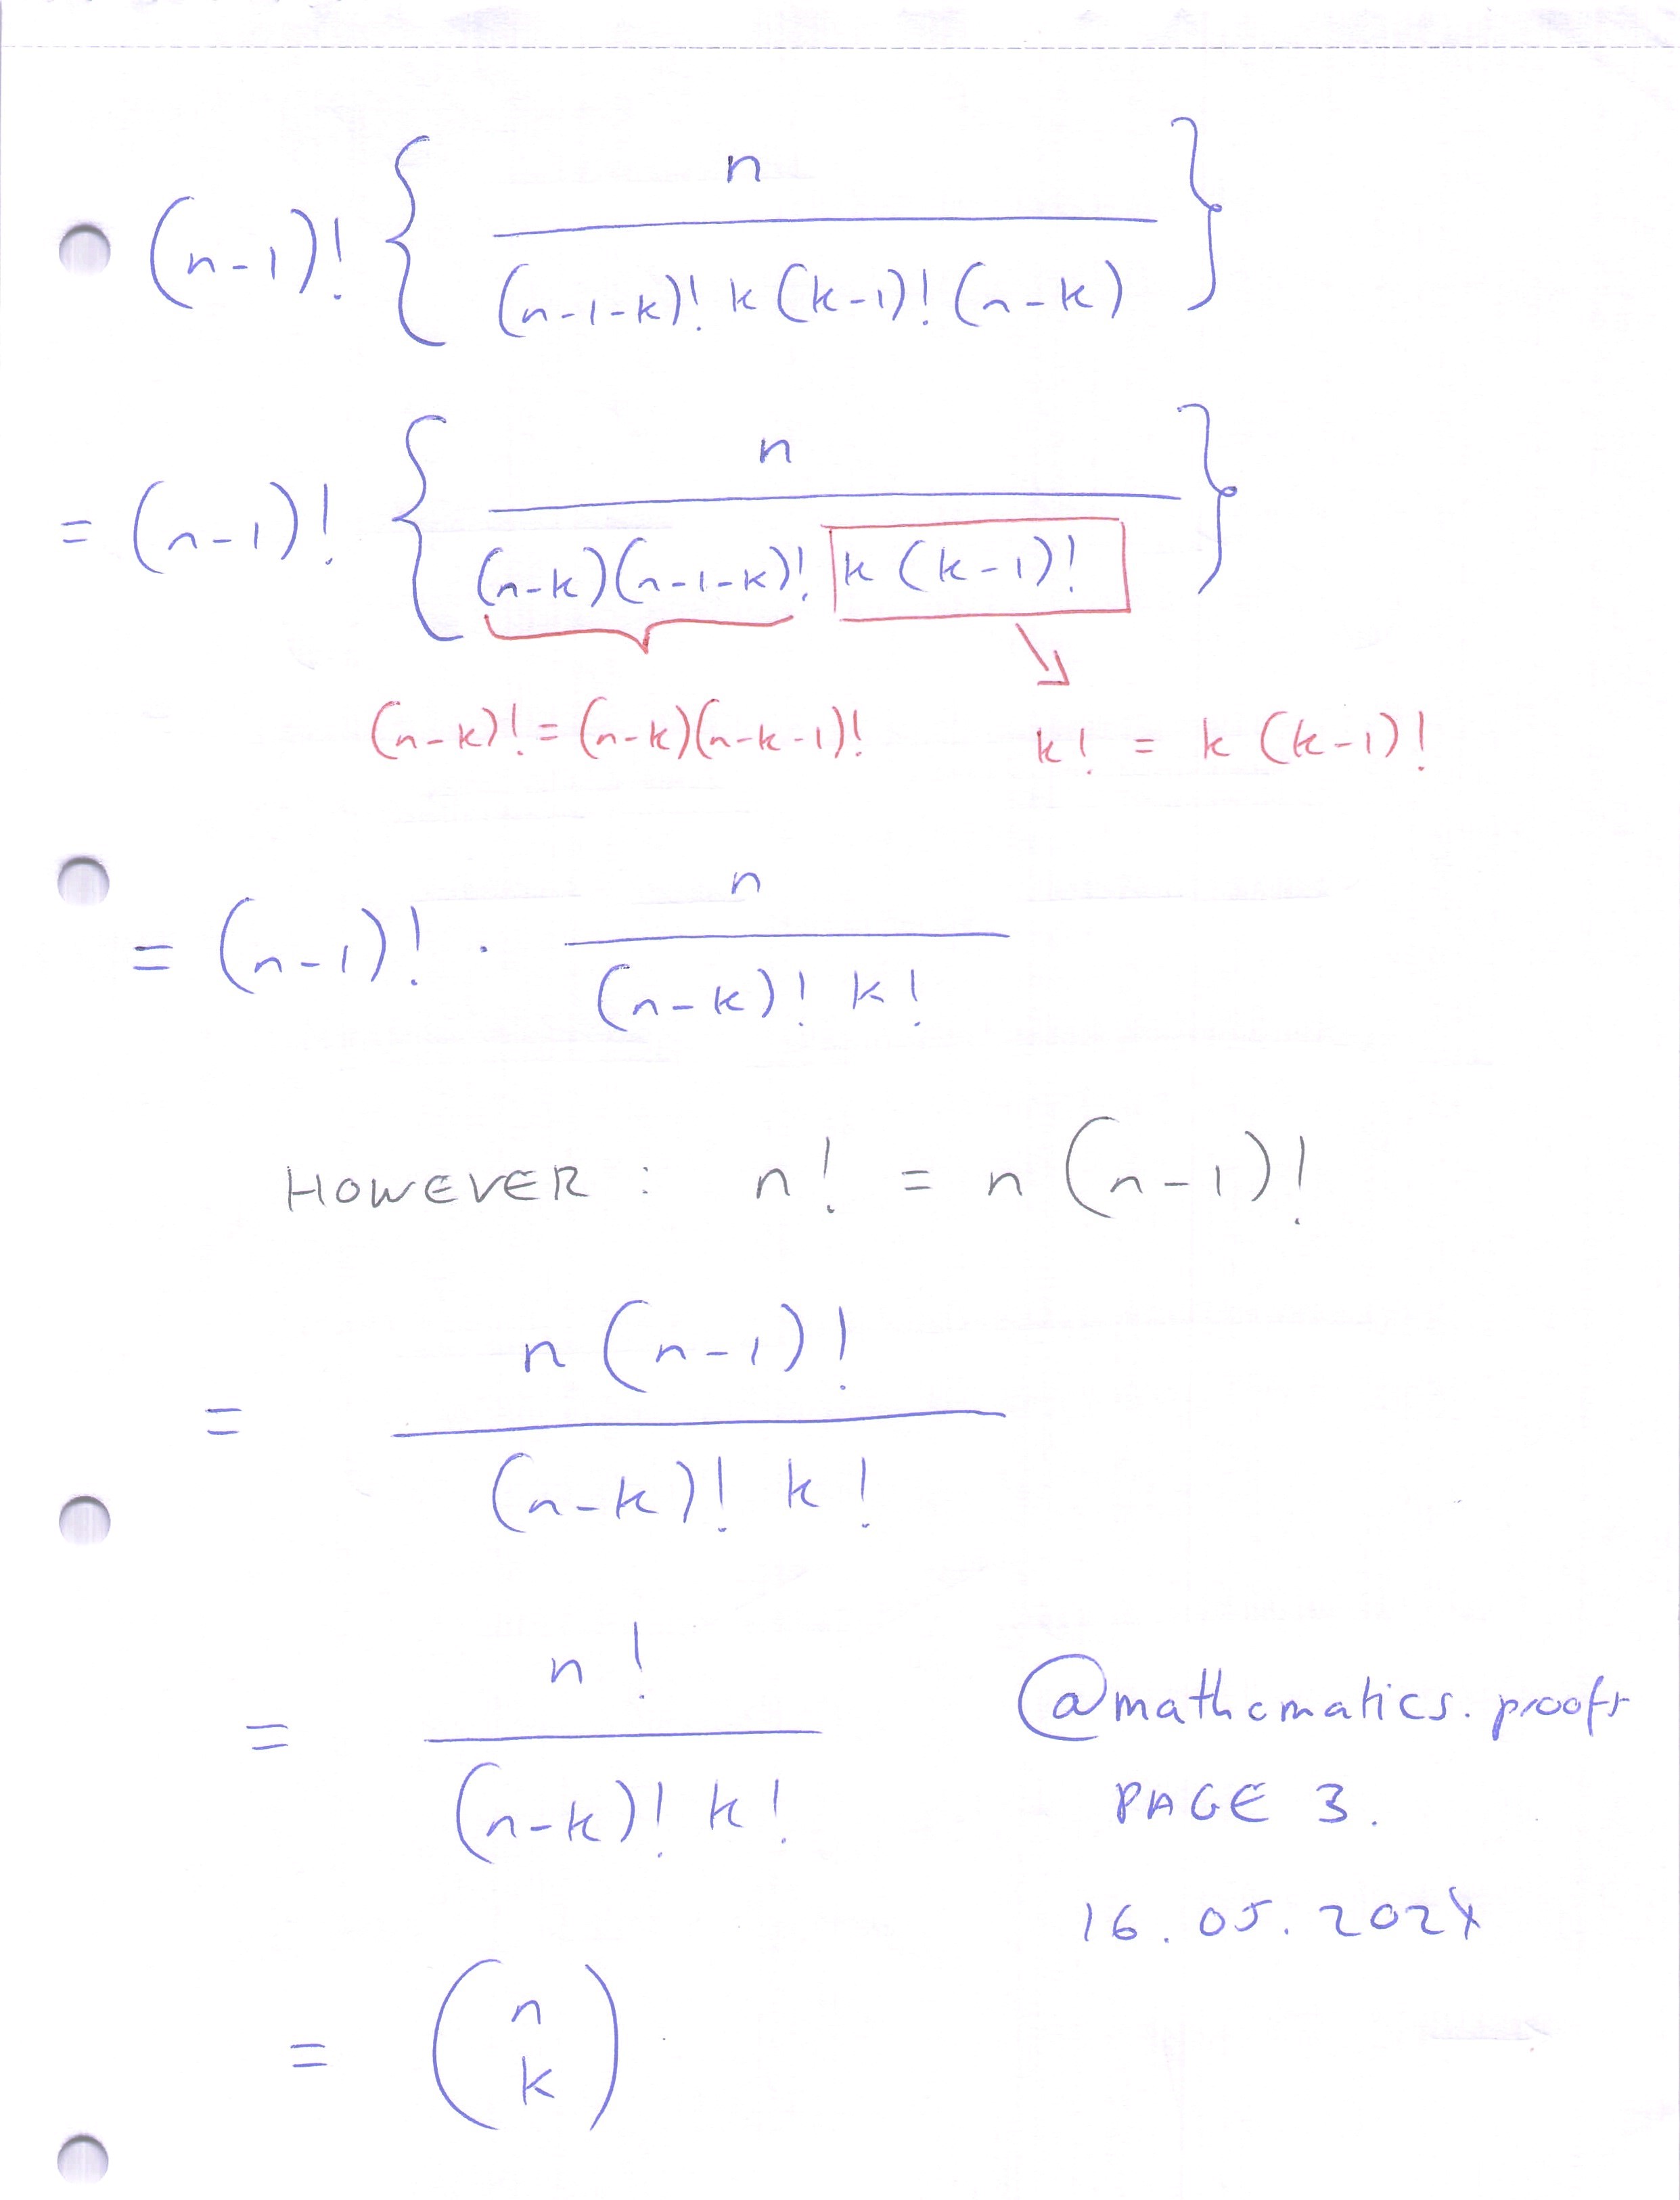 (n-1)! { n / (n-1-k)! k (k-1)! (n-k) }
= (n-1)! { n / (n-k)(n-1-k)! k (k-1)! }
(n-k)! = (n-k)(n-k-1)!
k! = k (k-1)!
= (n-1)! · n / (n-k)! k!
HOWEVER : n! = n (n-1)!
= n (n-1)! / (n-k)! k!
= n! / (n-k)! k!
@mathematics.proofs
PAGE 3.
16.05.2024
= (n k)